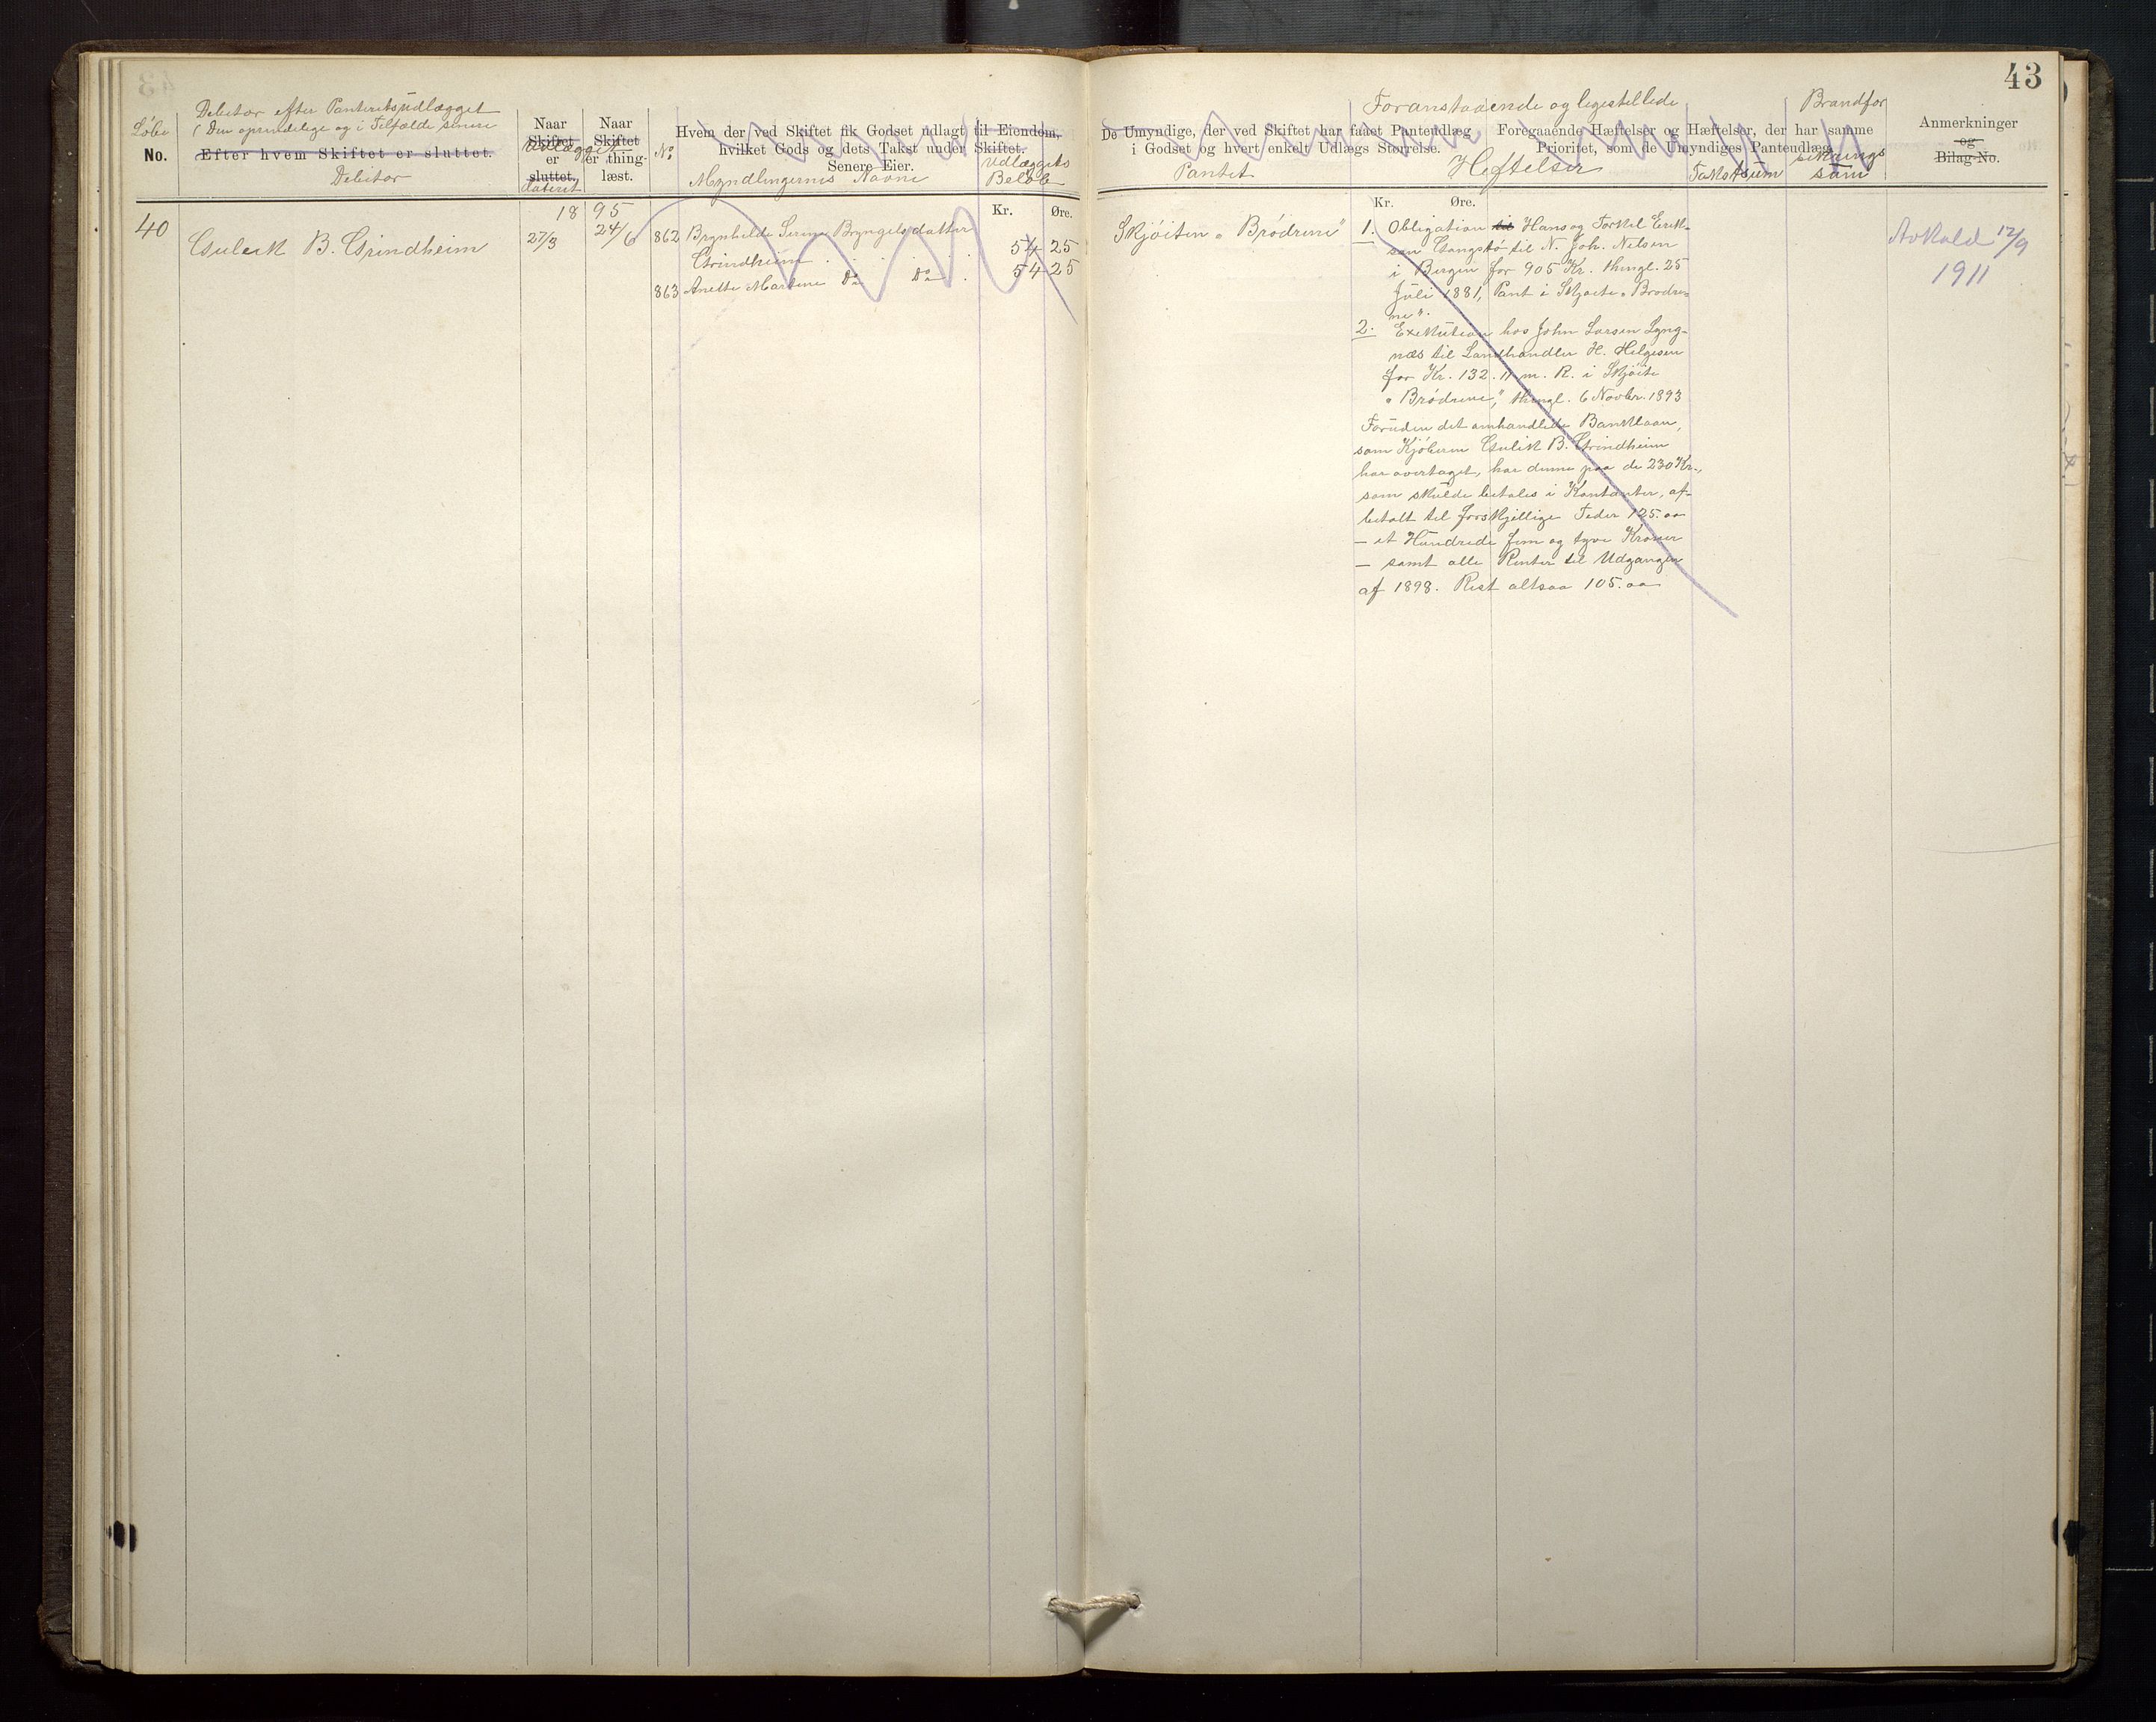 43
Debitor efter Panteretsudlægget
(Den oprindelige og i Tilfælde senere
Løbe
No.
Efter hvem Skiftet er sluttet.
Debitor
Naar
Skiftet
Udlægget
er
sluttet.
dateret
Naar
Skiftet
er thing-
læst.
No
Hvem der ved Skiftet fik Godset udlagt til Eiendom,
hvilket Gods og dets Takst under Skiftet.
Senere Eier.
Myndlingernes Navne
Udlæggets
Beløb
De Umyndige, der ved Skiftet har faaet Panteudlæg
i Godset og hvert enkelt Udlægs Størrelse.
Pantet
Foranstaaende og ligestillede
Foregaaende Hæftelser og Hæftelser, der har samme
Prioritet, som de Umyndiges Panteudlæg.
Heftelser
Takstsum
Brandfor
sikrings
sum
Anmerkninger
og
Bilag-No.
40
Gulleik B. Grindheim
18 95
27/3
24/6
Kr. Øre.
862 Brynhilde Serine Bryngelsdatter
Grindheim . . . 54 25
863 Anette Martine Do Do . 54 25
Skjøiten "Brødrene"
Kr. Øre.
1. Obligation til Hans og Torkel Erik-
sen Gangstø til N. Joh. Nelsen
i Bergen for 905 Kr. thingl. 25
Juli 1881, Pant i Skjøite "Brødre-
ne".
2. Exekution hos John Larsen Lyng-
næs til Landhandler H. Helgesen
for Kr. 132.11 m. R. i Skjøite
"Brødrene", thingl. 6 Novbr. 1893
Foruden det omhandlede Banklaan,
som Kjøberen Gulleik B. Grindheim
har overtaget, har denne paa de 230 Kr.,
som skulde betales i Kontanter, af-
betalt til forskjellige Tider 125.00
— et Hundrede fem og tyve Kroner
— samt alle Renter til Udgangen
af 1898. Rest altsaa 105.00
Avkald 12/9
1911